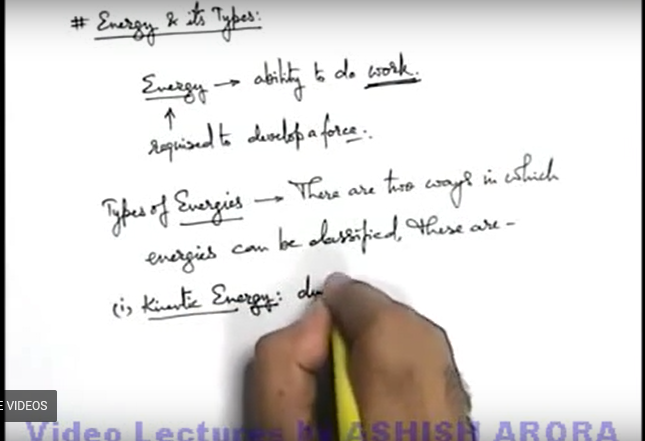 # Energy & its Types:
Energy → ability to do work.
↑
required to develop a force.
Types of Energies → There are two ways in which
energies can be classified, These are -
(i) Kinetic Energy: du
E VIDEOS
Video Lectures by ASHISH ARORA